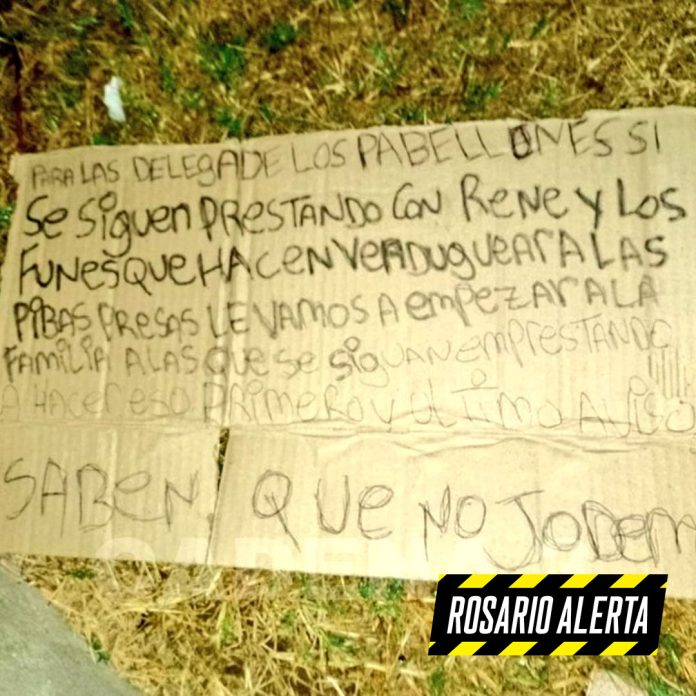 PARA LAS DELEGADE LOS PABELLONES SI
Se siguen PRESTANDO CON Rene y LOS
FUNES QUE HACEN VERDUGUEAR A LAS
PIBAS PRESAS LE VAMOS A EMPEZAR A LA
FAMILIA A LAS QUE SE Siguan EMPRESTANDO
A HACER ESO PRIMERO Y ULTIMO AVISO
SABEN. QUE NO JODEM
CADENA
ROSARIO ALERTA